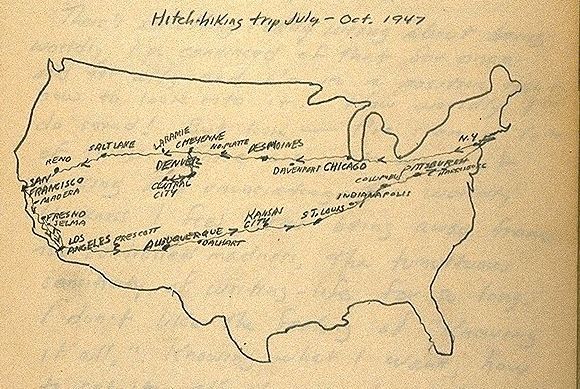 Hitch-hiking trip July - Oct. 1947
N.Y.
RENO
SALT LAKE
LARAMIE
CHEYENNE
NO. PLATTE
DES MOINES
DAVENPORT
CHICAGO
DENVER
CENTRAL
CITY
SAN
FRANCISCO
MADERA
FRESNO
SELMA
LOS
ANGELES
PRESCOTT
ALBUQUERQUE
DALHART
KANSAS
CITY
ST. LOUIS
INDIANAPOLIS
COLUMBUS
PITTSBURGH